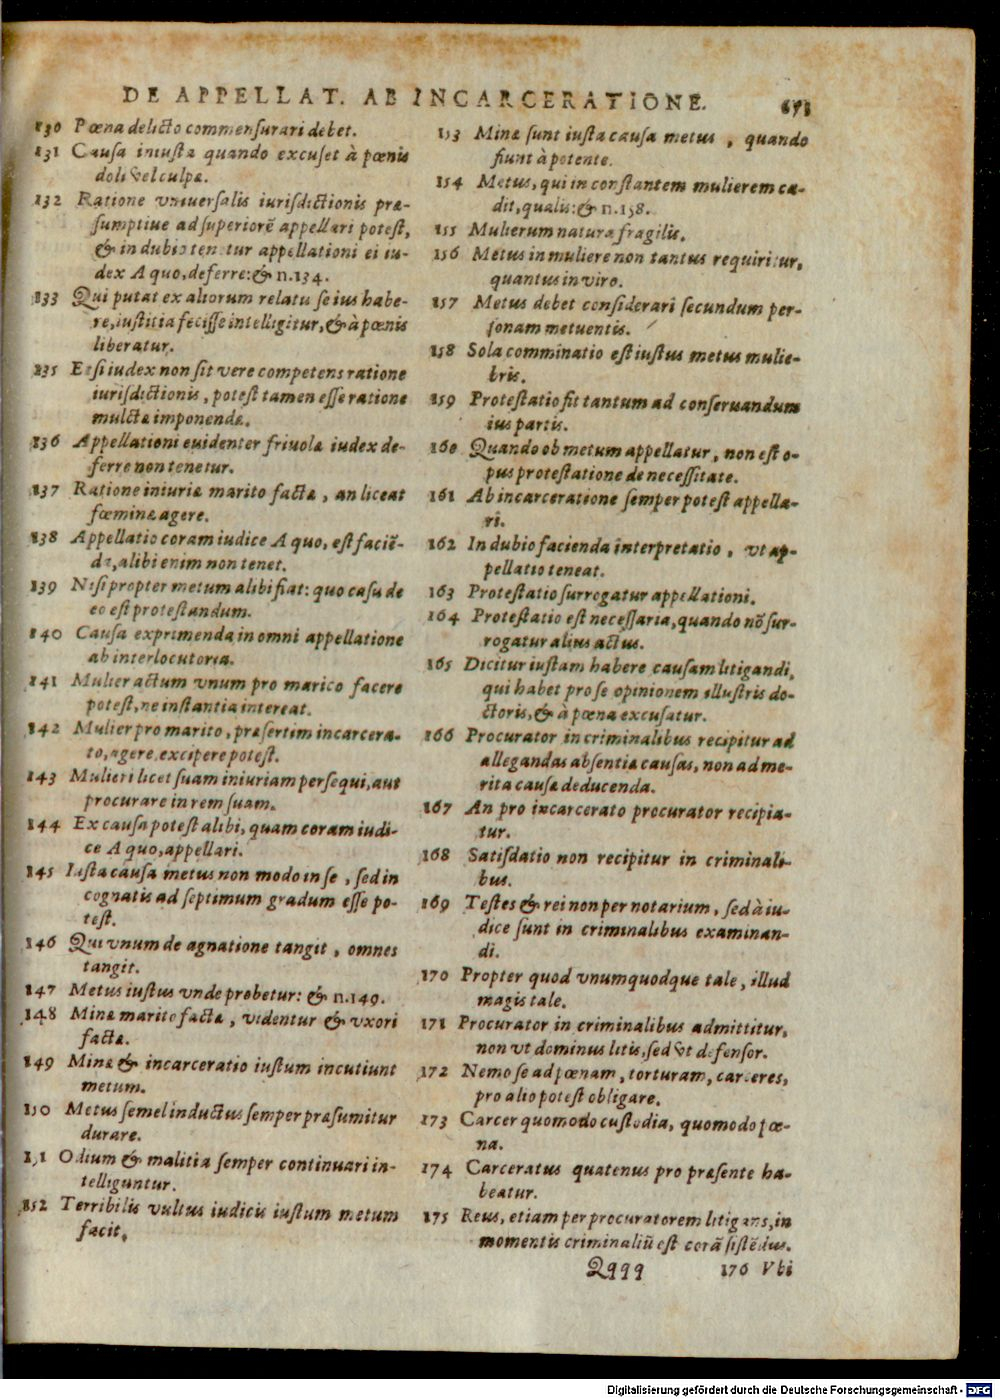 DE APPELLAT. AB INCARCERATIONE. 673
130 Pœna delicto commensurari debet.
131 Causa iniusta quando excuset à pœnis
doli vel culpæ.
132 Ratione vniuersalis iurisdictionis præ-
sumptiue ad superiorē appellari potest,
& in dubio tenetur appellationi ei iu-
dex A quo, deferre: & n.134.
133 Qui putat ex aliorum relatu se ius habe-
re, iustitia fecisse intelligitur, & à pœnis
liberatur.
135 Etsi iudex non sit vere competens ratione
iurisdictionis, potest tamen esse ratione
mulctæ imponendæ.
136 Appellationi euidenter friuolæ iudex de-
ferre non tenetur.
137 Ratione iniuriæ marito factæ, an liceat
fœminæ agere.
138 Appellatio coram iudice A quo, est faciē-
da, alibi enim non tenet.
139 Nisi propter metum alibi fiat: quo casu de
eo est protestandum.
140 Causa exprimenda in omni appellatione
ab interlocutoria.
141 Mulier actum vnum pro marico facere
potest, ne instantia intereat.
142 Mulier pro marito, præsertim incarcera-
to, agere, excipere potest.
143 Mulieri licet suam iniuriam persequi, aut
procurare in rem suam.
144 Ex causa potest alibi, quam coram iudi-
ce A quo, appellari.
145 Iusta causa metus non modo in se, sed in
cognatis ad septimum gradum esse po-
test.
146 Qui vnum de agnatione tangit, omnes
tangit.
147 Metus iustus vnde probetur: & n.149.
148 Minæ marito factæ, videntur & vxori
factæ.
149 Minæ & incarceratio iustum incutiunt
metum.
150 Metus semel inductus semper præsumitur
durare.
151 Odium & malitia semper continuari in-
telliguntur.
152 Terribilis vultus iudicis iustum metum
facit.
153 Minæ sunt iusta causa metus, quando
fiunt à potente.
154 Metus, qui in constantem mulierem ca-
dit, qualis: & n.158.
155 Mulierum natura fragilis.
156 Metus in muliere non tantus requiritur,
quantus in viro.
157 Metus debet considerari secundum per-
sonam metuentis.
158 Sola comminatio est iustus metus mulie-
bris.
159 Protestatio fit tantum ad conseruandum
ius partis.
160 Quando ob metum appellatur, non est o-
pus protestatione de necessitate.
161 Ab incarceratione semper potest appella-
ri.
162 In dubio facienda interpretatio, vt ap-
pellatio teneat.
163 Protestatio surrogatur appellationi.
164 Protestatio est necessaria, quando nō sur-
rogatur alius actus.
165 Dicitur iustam habere causam litigandi,
qui habet pro se opinionem illustris do-
ctoris, & à pœna excusatur.
166 Procurator in criminalibus recipitur ad
allegandas absentiæ causas, non ad me-
rita causæ deducenda.
167 An pro incarcerato procurator recipia-
tur.
168 Satisdatio non recipitur in criminali-
bus.
169 Testes & rei non per notarium, sed à iu-
dice sunt in criminalibus examinan-
di.
170 Propter quod vnumquodque tale, illud
magis tale.
171 Procurator in criminalibus admittitur,
non vt dominus litis, sed vt defensor.
172 Nemo se ad pœnam, torturam, carceres,
pro alio potest obligare.
173 Carcer quomodo custodia, quomodo pœ-
na.
174 Carceratus quatenus pro præsente ha-
beatur.
175 Reus, etiam per procuratorem litigans, in
momentis criminaliū est corā sistēdus.
Qqqq 176 Vbi
Digitalisierung gefördert durch die Deutsche Forschungsgemeinschaft - DFG